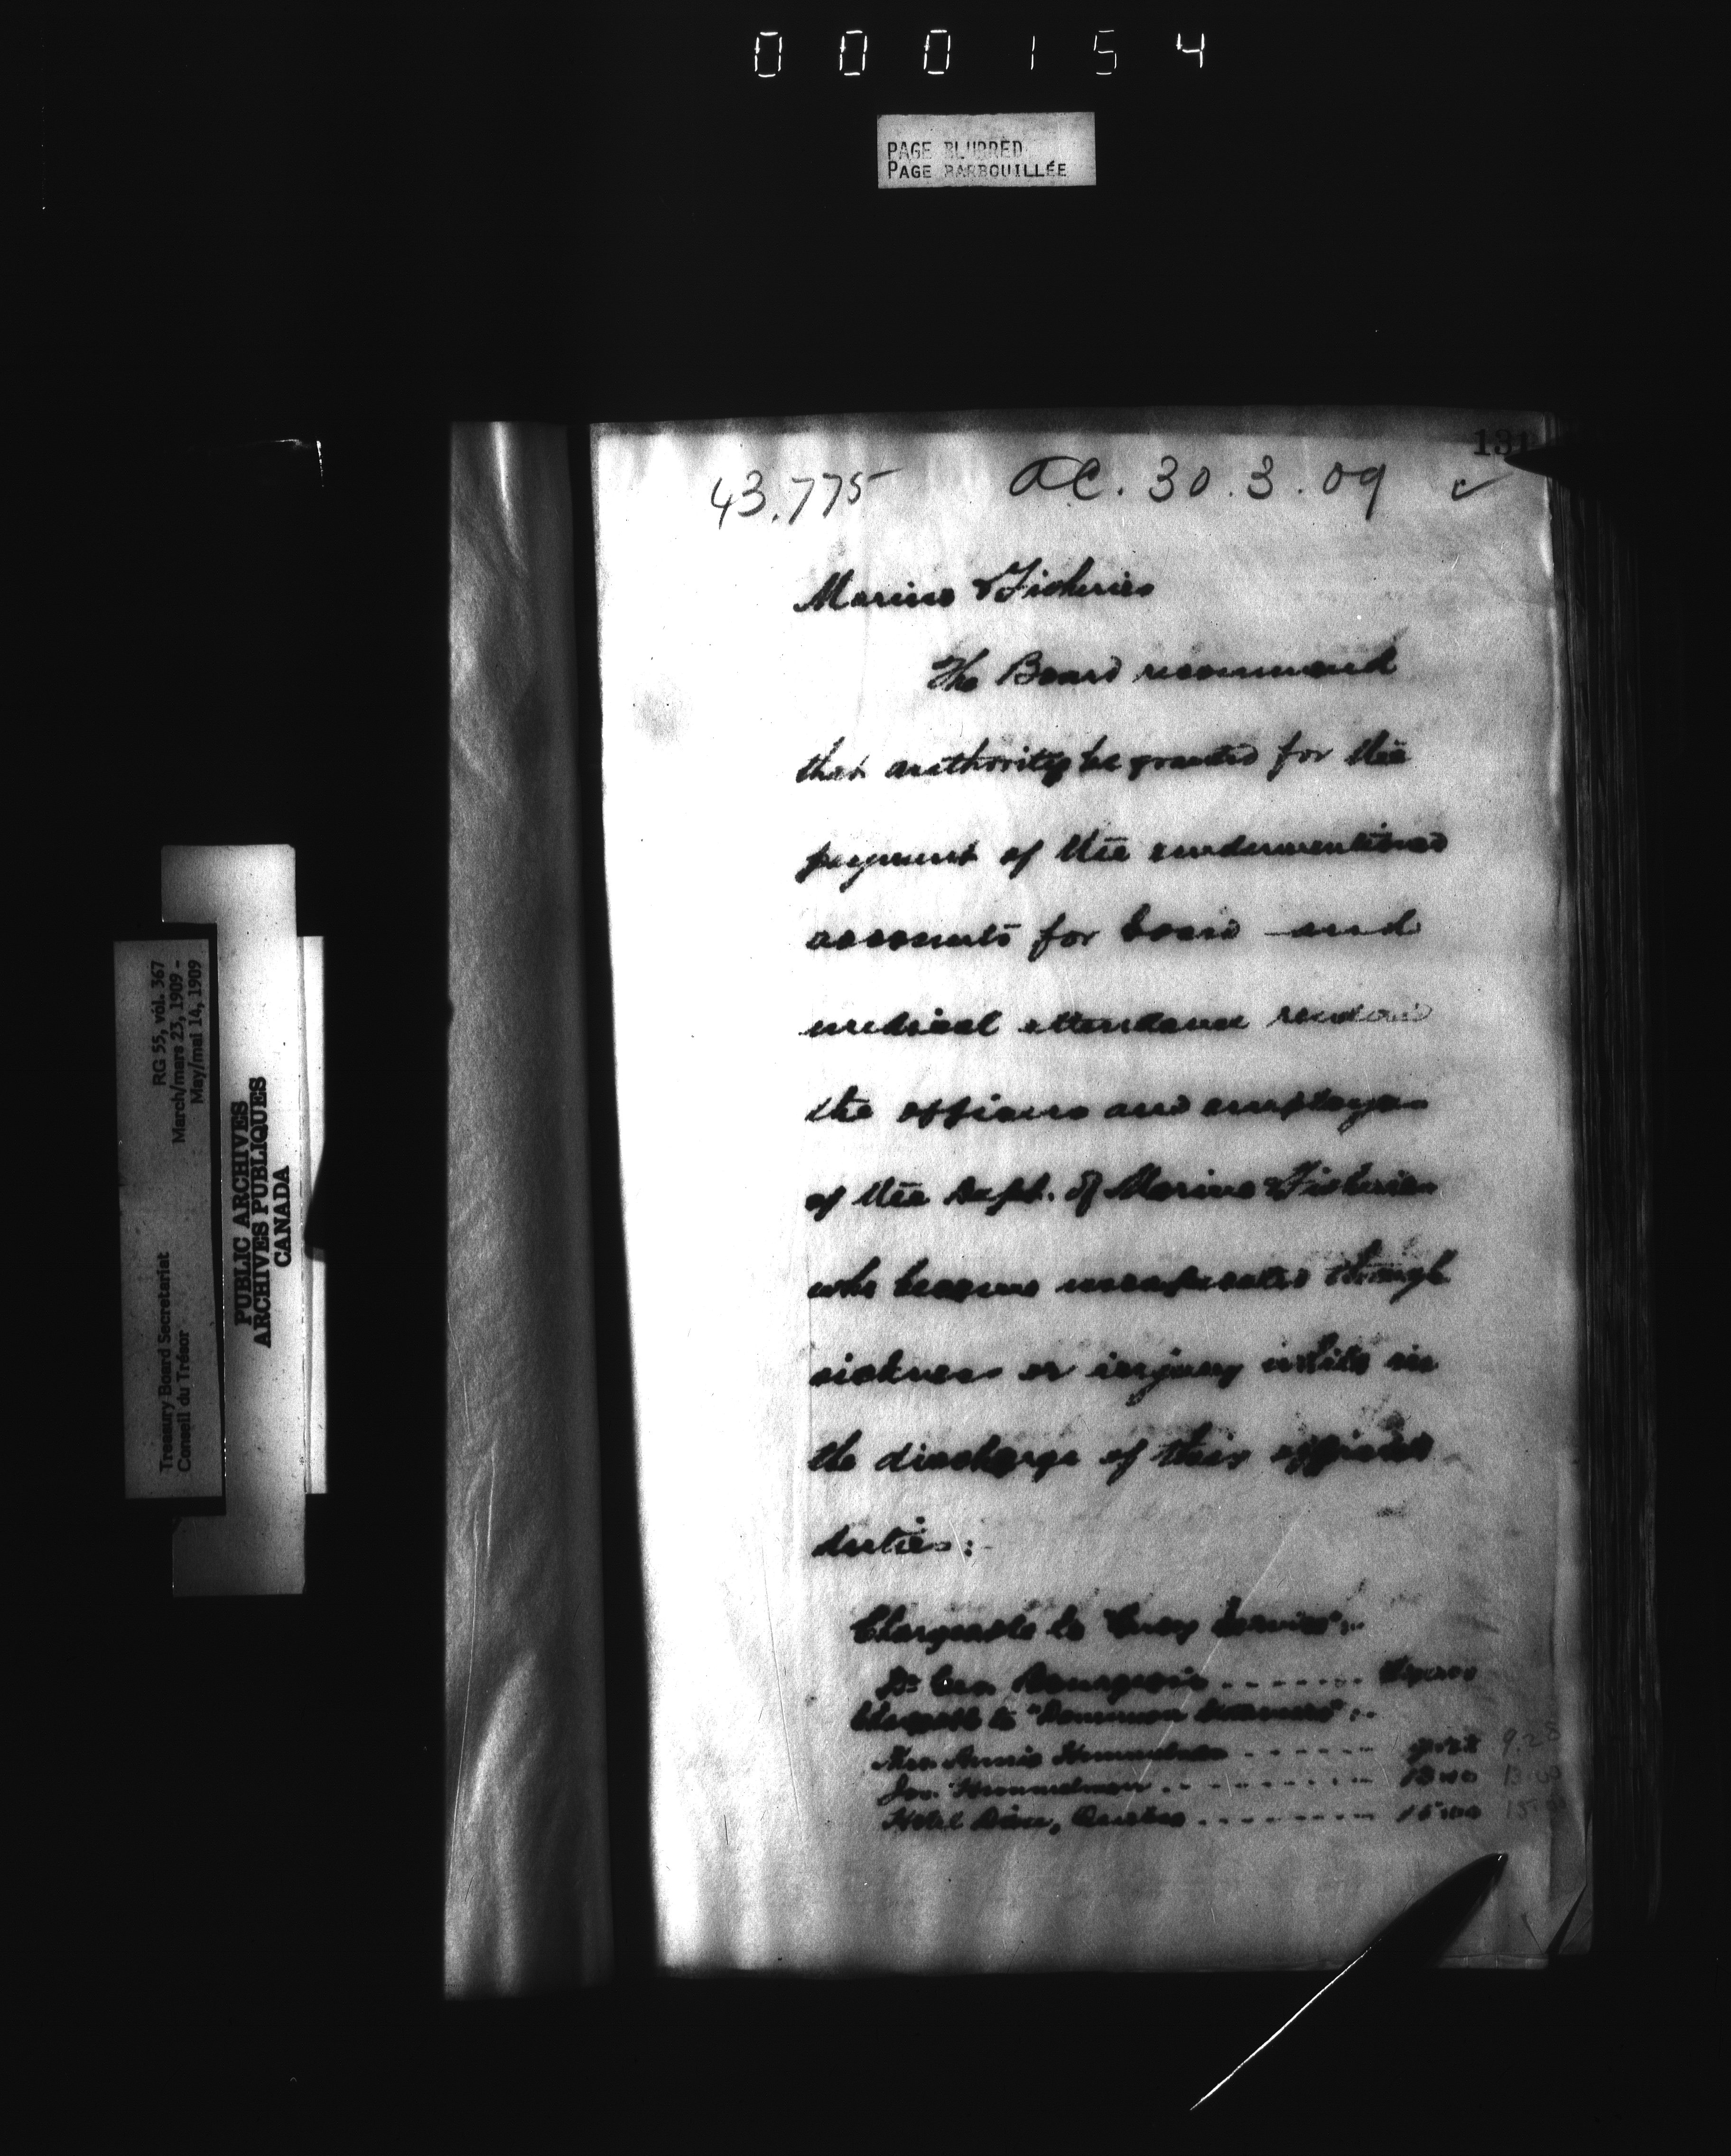 000154
PAGE BLURRED
PAGE BARBOUILLÉE
131
43.775 O.C. 30.3.09 ✓
Marine & Fisheries
The Board recommend
that authority be granted for the
payment of the undermentioned
accounts for board and
medical attendance
the officers and employees
of the Dept. of Marine & Fisheries
who became incapacitated through
sickness or injury while in
the discharge of their official
duties:
Chargeable to "Buoy Service":-
Dr. Geo. Bourgeois
Chargeable to "Dominion Steamers":-
Mrs. Annie Himmelman 9.25 9.25
Jos. Himmelman 13.00 13.00
Hotel Dieu, Quebec 15.00 15.00
Treasury Board Secretariat RG 55, vol. 367
Conseil du Trésor March/mars 23, 1909 -
May/mai 14, 1909
PUBLIC ARCHIVES
ARCHIVES PUBLIQUES
CANADA